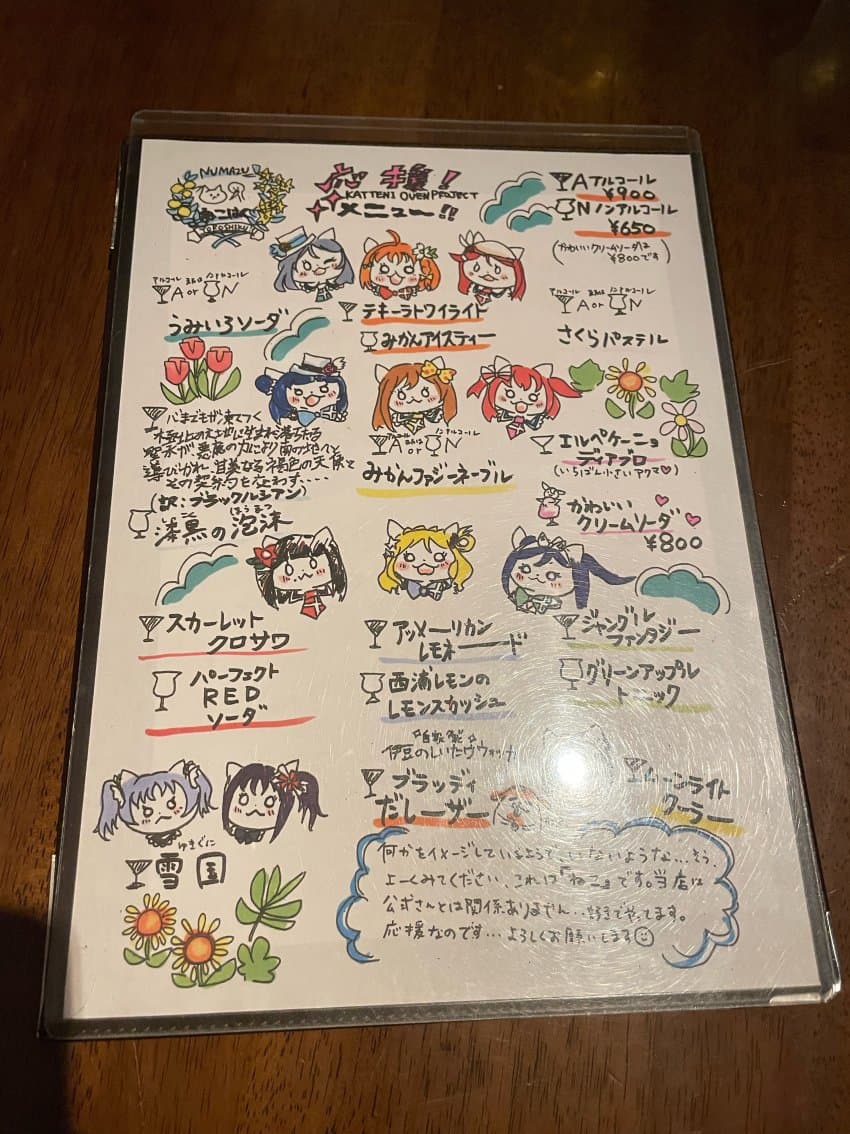 NUMAZU
ねこはく
YOROSHIKU
応援！
KATTENI OUEN PROJECT
メニュー!!
Aアルコール
¥900
Nノンアルコール
¥650
(かわいいクリームソーダは
¥800です)
アルコール または ノンアルコール
A or N
うみいろソーダ
テキーラトワイライト
みかんアイスティー
アルコール または ノンアルコール
A or N
さくらパステル
心までもが凍てつく
導びかれ、甘美なる褐色の天使と
その契約を交わす・・・・
(訳:ブラックルシアン)
しっこく ほうまつ
漆黒の泡沫
アルコール または ノンアルコール
A or N
みかんファジーネーブル
エルペケーニョ
ディアブロ
(いちばん小さいアクマ♡)
かわいい
クリームソーダ
¥800
スカーレット
クロサワ
パーフェクト
RED
ソーダ
アッメーリカン
レモネード
西浦レモンの
レモンスカッシュ
ジャングル
ファンタジー
グリーンアップル
トニック
自家製
伊豆のしいたけウォッカ
ブラッディ
だレーザー
ムーンライト
クーラー
ゆきぐに
雪国
何かをイメージしているようで、いないような...そう、
よーくみてください、これは「ねこ」です。当店は
公式さんとは関係ありません..好きでやってます。
応援なのです...よろしくお願いします